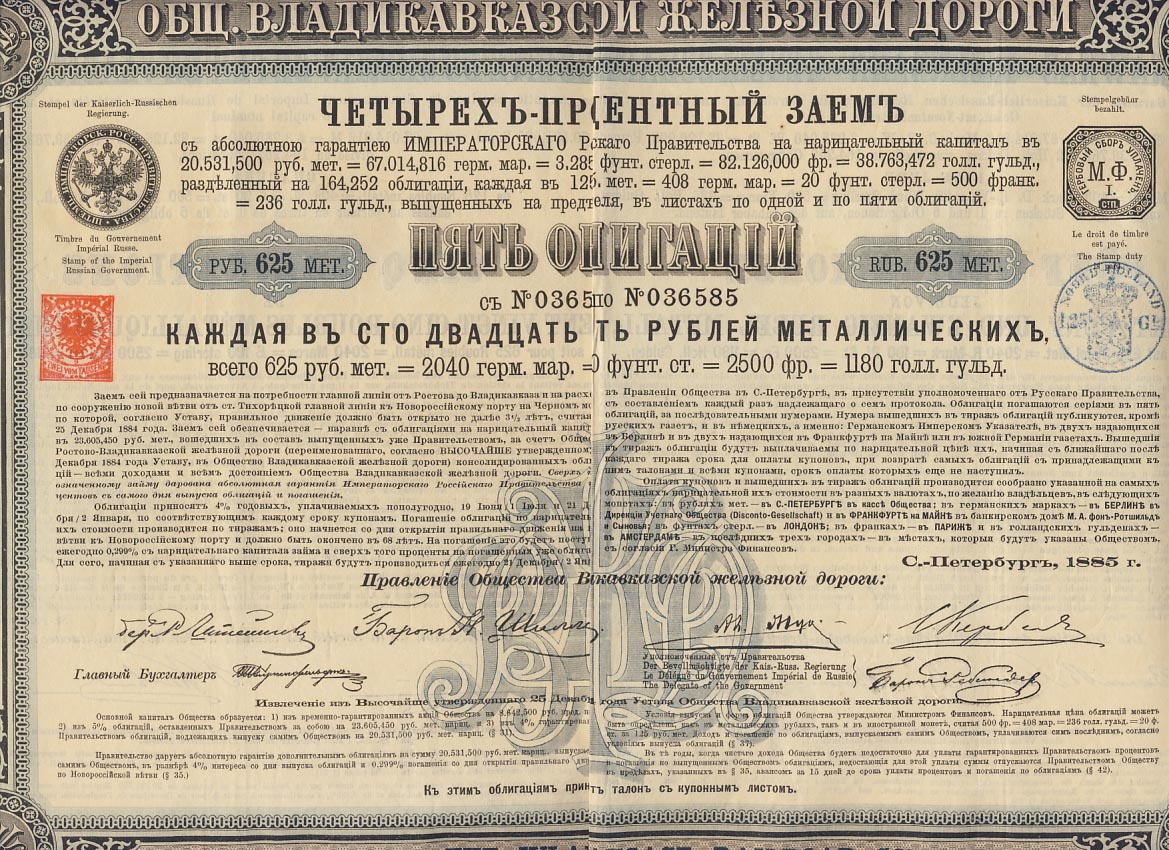 ОБЩ. ВЛАДИКАВКАЗСОЙ ЖЕЛѢЗНОЙ ДОРОГИ
Stempel der Kaiserlich-Russischen
Regierung.
ИМПЕРАТОРСК. РОСС. ПРАВИТЕЛЬСТВА ШТЕМПЕЛЬ
Timbre du Gouvernement
Impérial Russe.
Stamp of the Imperial
Russian Government.
ЧЕТЫРЕХЪ-ПРЕНТНЫЙ ЗАЕМЪ
съ абсолютною гарантіею ИМПЕРАТОРСКАГО Рскаго Правительства на нарицательный капиталъ въ
20.531,500 руб. мет. = 67.014,816 герм. мар. = 3.285 фунт. стерл. = 82.126,000 фр. = 38.763,472 голл. гульд.,
раздѣленный на 164,252 облигаціи, каждая въ 125. мет. = 408 герм. мар. = 20 фунт. стерл. = 500 франк.
= 236 голл. гульд., выпущенныхъ на предтеля, въ листахъ по одной и по пяти облигацій.
Stempelgebür
bezahlt.
ГЕРБОВЫЙ СБОРЪ УПЛАЧЕНЪ
М.Ф.
I.
СП.
Le droit de timbre
est payé.
The Stamp duty
РУБ. 625 МЕТ.
ПЯТЬ ОПИГАЦІЙ
RUB. 625 МЕТ.
съ №0365по №036585
NOORD HOLLAND
1.25 Gl
КАЖДАЯ ВЪ СТО ДВАДЦАТЬ ТЬ РУБЛЕЙ МЕТАЛЛИЧЕСКИХЪ,
всего 625 руб. мет. = 2040 герм. мар. =0 фунт. ст. = 2500 фр. = 1180 голл. гульд.
Заемъ сей предназначается на потребности главной линіи отъ Ростова до Владикавказа и на расхо
по сооруженію новой вѣтви отъ ст. Тихорѣцкой главной линіи къ Новороссійскому порту на Черномъ мо
по которой, согласно Уставу, правильное движеніе должно быть открыто не далѣе 3½ лѣтъ, считая
25 Декабря 1884 года. Заемъ сей обезпечивается — наравнѣ съ облигаціями на нарицательный капит
въ 23.605,450 руб. мет., вошедшихъ въ составъ выпущенныхъ уже Правительствомъ, за счетъ Общес
Ростово-Владикавказской желѣзной дороги (переименованнаго, согласно ВЫСОЧАЙШЕ утвержденном
Декабря 1884 года Уставу, въ Общество Владикавказской желѣзной дороги) консолидированныхъ обл
цій — всѣми доходами и всѣмъ достояніемъ Общества Владикавказской желѣзной дороги. Сверхъ
означенному займу дарована абсолютная гарантія Императорскаго Россійскаго Правительства
центовъ съ самого дня выпуска облигацій и погашенія.
Облигаціи приносятъ 4% годовыхъ, уплачиваемыхъ пополугодно, 19 Іюня / 1 Іюля и 21 Де
бря / 2 Января, по соотвѣтствующимъ каждому сроку купонамъ. Погашеніе облигацій по нарицатель
ихъ стоимости производится по тиражамъ; оно начнется со дня открытія правильнаго движенія на
вѣтви къ Новороссійскому порту и должно быть окончено въ 68 лѣтъ. На погашеніе это будетъ посту
ежегодно 0,299% съ нарицательнаго капитала займа и сверхъ того проценты на погашенныя уже облиг
Для сего, начиная съ указаннаго выше срока, тиражи будутъ производиться ежегодно 21 Декабря / 2 Ян
въ Правленіи Общества въ С.-Петербургѣ, въ присутствіи уполномоченнаго отъ Русскаго Правительства,
съ составленіемъ каждый разъ надлежащаго о семъ протокола. Облигаціи погашаются серіями въ пять
облигацій, за послѣдовательными нумерами. Нумера вышедшихъ въ тиражъ облигацій публикуются, кромѣ
русскихъ газетъ, и въ нѣмецкихъ, а именно: Германскомъ Имперскомъ Указателѣ, въ двухъ издающихся
въ Берлинѣ и въ двухъ издающихся въ Франкфуртѣ на Майнѣ или въ южной Германіи газетахъ. Вышедшія
въ тиражъ облигаціи будутъ выплачиваемы по нарицательной цѣнѣ ихъ, начиная съ ближайшаго послѣ
каждаго тиража срока для оплаты купоновъ, при возвратѣ самыхъ облигацій съ принадлежащими къ
нимъ талонами и всѣми купонами, срокъ оплаты которыхъ еще не наступилъ.
Оплата купоновъ и вышедшихъ въ тиражъ облигацій производится сообразно указанной на самыхъ
облигаціяхъ нарицательной ихъ стоимости въ разныхъ валютахъ, по желанію владѣльцевъ, въ слѣдующихъ
монетахъ: въ рубляхъ мет. — въ С.-ПЕТЕРБУРГѢ въ кассѣ Общества; въ германскихъ маркахъ — въ БЕРЛИНѢ въ
Дирекціи Учетнаго Общества (Disconto-Gesellschaft) и въ ФРАНКФУРТѢ на МАЙНѢ въ банкирскомъ домѣ М. А. фонъ-Ротшильдъ
и Сыновья; въ фунтахъ стерл. — въ ЛОНДОНѢ; въ франкахъ — въ ПАРИЖѢ и въ голландскихъ гульденахъ —
въ АМСТЕРДАМѢ — въ послѣднихъ трехъ городахъ — въ мѣстахъ, которыя будутъ указаны Обществомъ,
съ согласія Г. Министра Финансовъ.
С.-Петербургъ, 1885 г.
Правленіе Общества Вікавказской желѣзной дороги:
Главный Бухгалтеръ
Уполномоченный отъ Правительства
Der Bevollmächtigte der Kais.-Russ. Regierung
Le Délégué du Gouvernement Impérial de Russie
The Delegate of the Government
Извлеченіе изъ Высочайше утвержденнаго 25 Декабя года Устава Общества Владикавказской желѣзной дороги.
Основной капиталъ Общества образуется: 1) изъ временно-гарантированныхъ акцій Общества на 8,642,500 руб. кред. н
2) изъ 5%, облигацій, оставленныхъ Правительствомъ за собою на 23.605,450 руб. мет. нариц. и 3) изъ 4% гарантирован
Правительствомъ облигацій, подлежащихъ выпуску самимъ Обществомъ на 20.531,500 руб. мет. нариц. (§ 31).
Правительство даруетъ абсолютную гарантію дополнительнымъ облигаціямъ на сумму 20.531,500 руб. мет. нариц., выпускае
самимъ Обществомъ, въ размѣрѣ 4% интереса со дня выпуска облигацій и 0.299% погашенія со дня открытія правильнаго дви
по Новороссійской вѣтви (§ 35.)
Условія выпуска и форма облигацій Общества утверждаются Министромъ Финансовъ. Нарицательная цѣна облигацій можетъ
быть опредѣлена, какъ въ металлическихъ рубляхъ, такъ и въ иностранной монетѣ, считая 500 фр. = 408 мар. = 236 голл. гульд. = 20 ф.
ст. за 125 руб. мет. Доходъ и погашеніе по облигаціямъ, выпускаемымъ самимъ Обществомъ, уплачиваются симъ послѣднимъ, согласно
условіямъ выпуска облигацій (§ 37).
Въ тѣ годы, когда чистаго дохода Общества будетъ недостаточно для уплаты гарантированныхъ Правительствомъ процентовъ
и погашенія по выпущеннымъ Обществомъ облигаціямъ, недостающія для этой уплаты суммы отпускаются Правительствомъ Обществу
въ предѣлахъ, указанныхъ въ § 35, авансомъ за 15 дней до срока уплаты процентовъ и погашенія по облигаціямъ (§ 42).
Къ этимъ облигаціямъ приктъ талонъ съ купоннымъ листомъ.